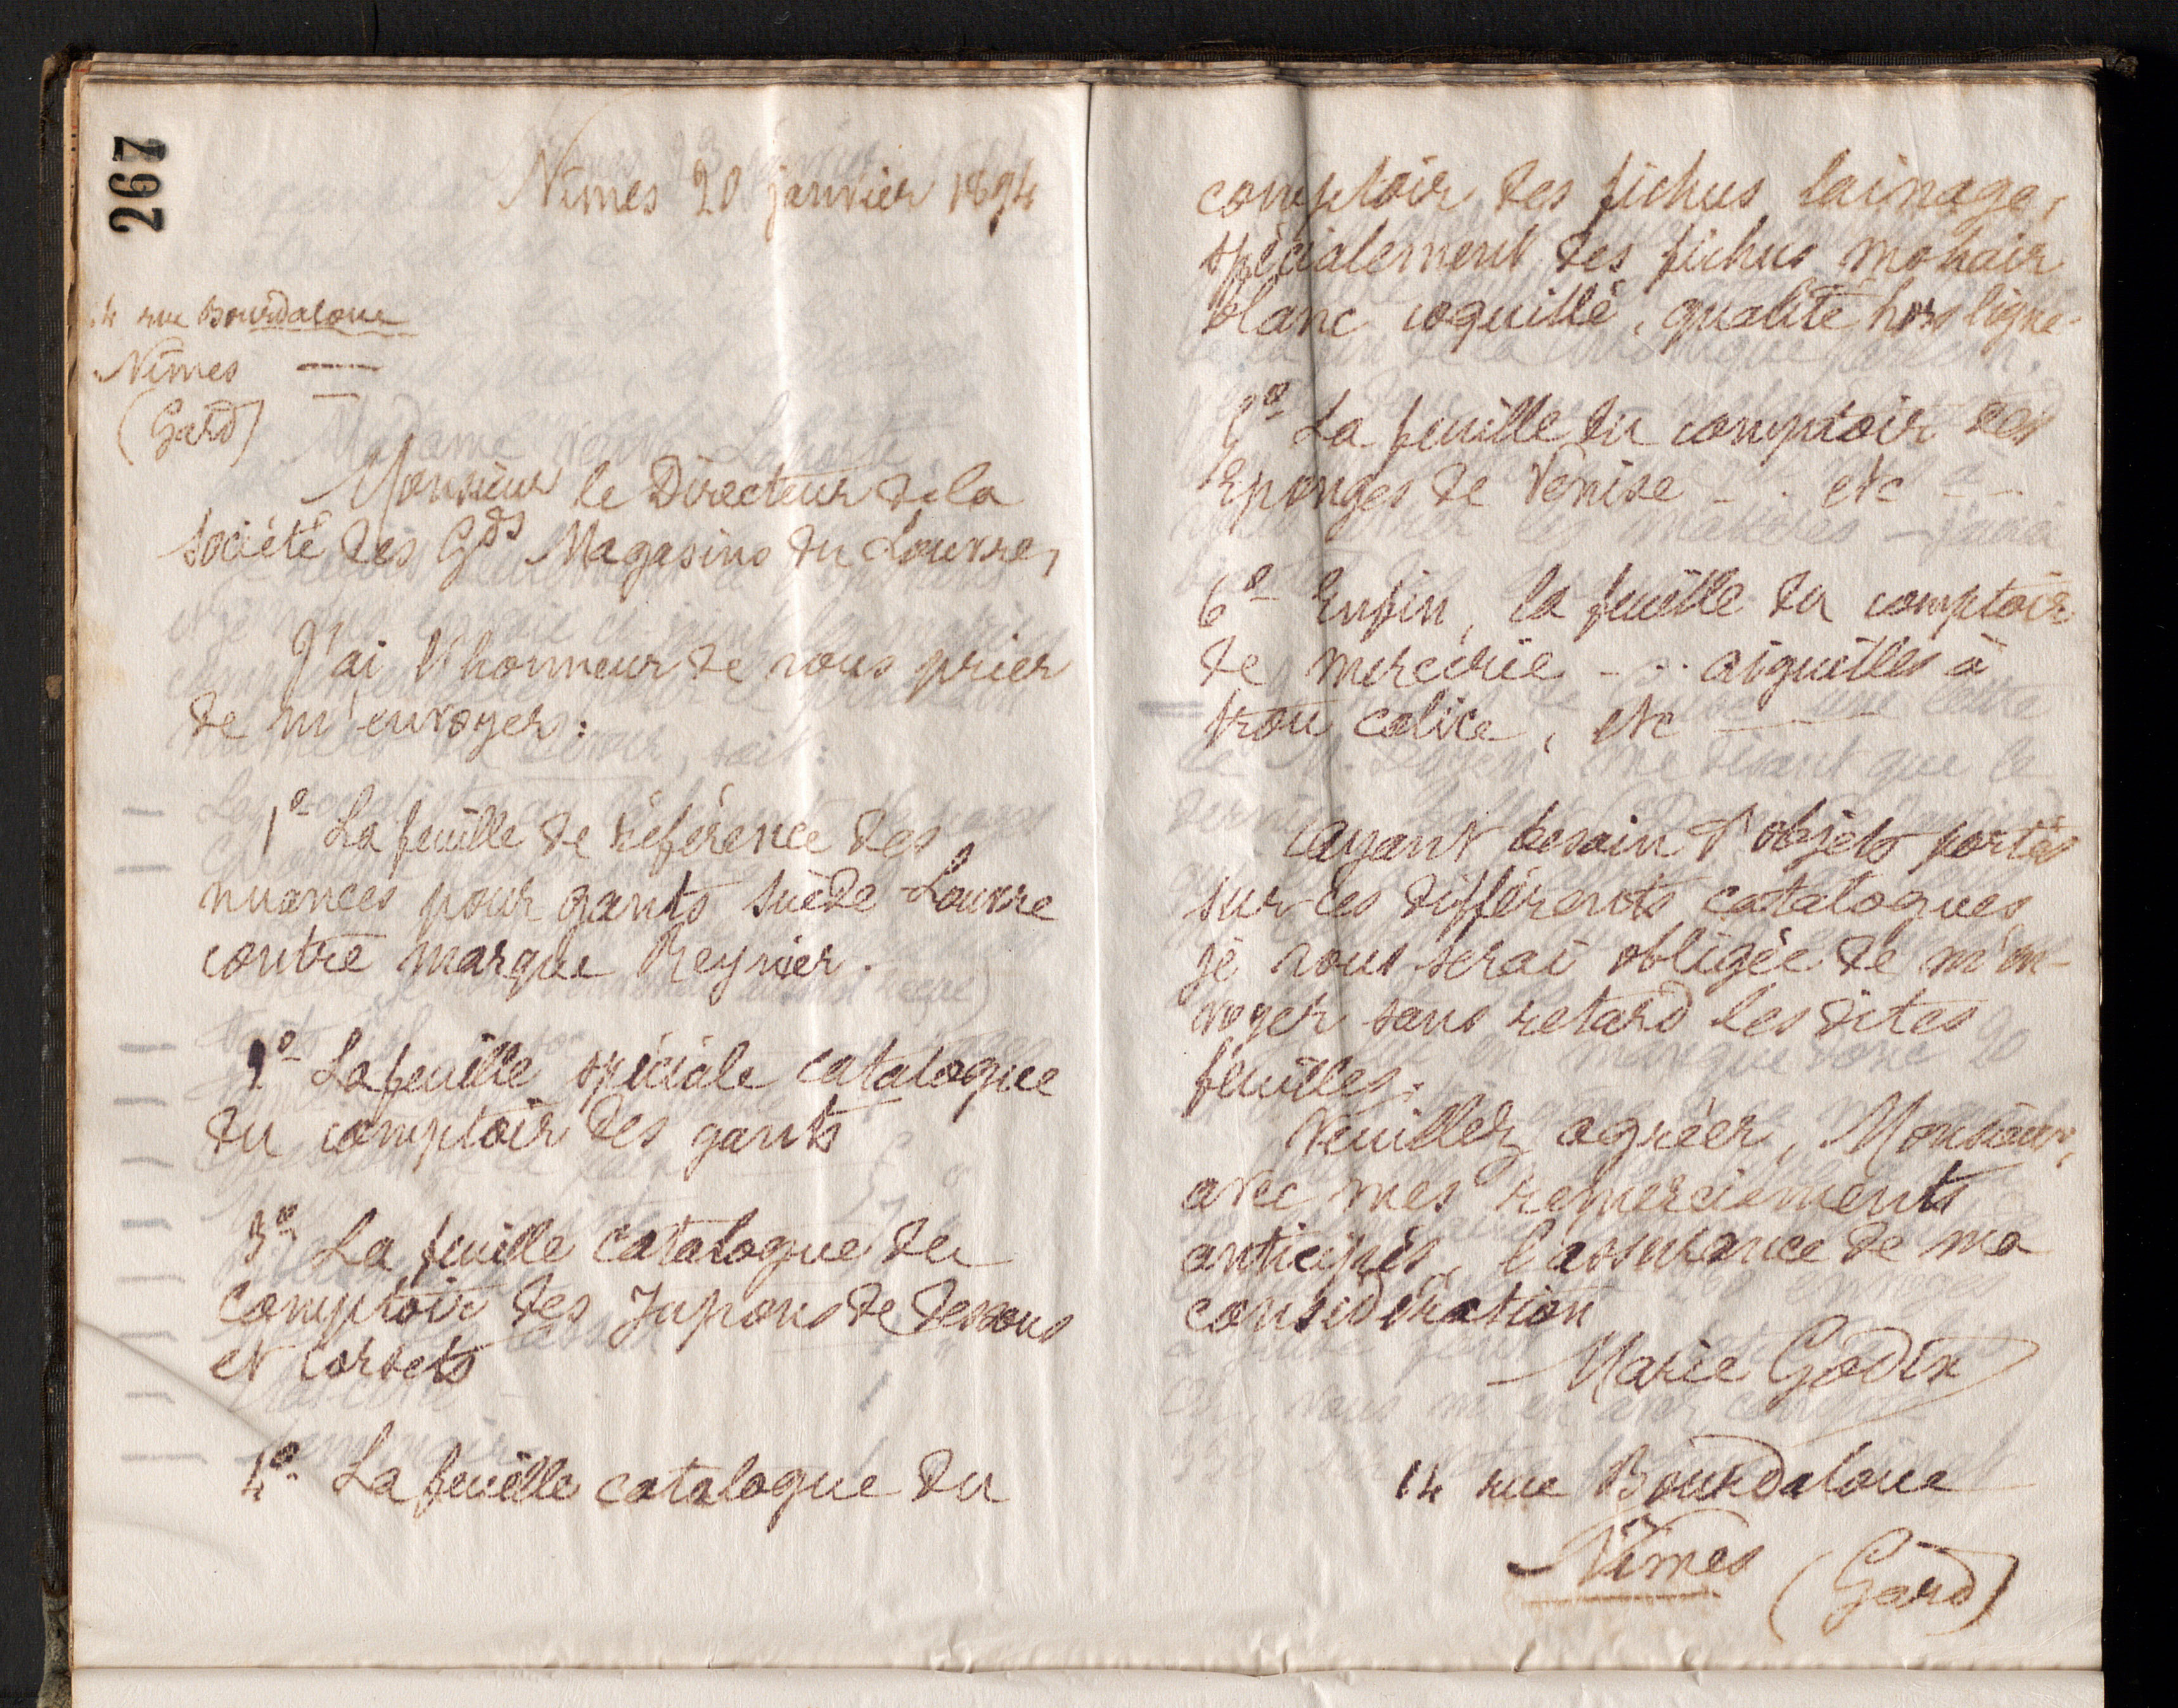 267
Nîmes 20 janvier 1894
14 rue Bourdaloue
Nîmes
(Gard)
Monsieur le Directeur de la
Société des Gds Magasins du Louvre,
J'ai l'honneur de vous prier
de m'envoyer:
1º La feuille de référence des
nuances pour gants suède Louvre
contre marque Reynier.
2º La feuille spéciale catalogue
du comptoir des gants
3º La feuille catalogue du
comptoir des Jupons de dessous
et corsets
4º La feuille catalogue du
comptoir des fichus lainage,
spécialement des fichus mohair
blanc coquillé, qualité hors ligne.
5º La feuille du comptoir des
Eponges de Venise - .. etc - ..
6º Enfin, la feuille du comptoir
de mercerie - .. aiguilles à
trou calice, etc —
Ayant besoin d'objets portés
sur ces différents catalogues
je vous serai obligée de m'en-
voyer sans retard les dites
feuilles.
Veuillez agréer, Monsieur,
avec mes remerciements
anticipés, l'assurance de ma
considération
Marie Godin
14 rue Bourdaloue
Nîmes (Gard)